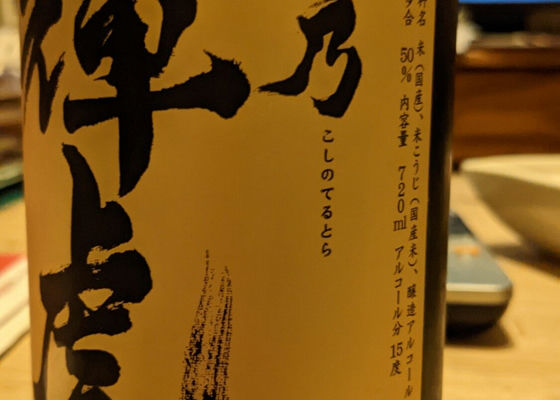 料名 米(国産)、米こうじ(国産米)、醸造アルコール
合 50% 内容量 720ml アルコール分 15度
乃
こしのてるとら
輝虎